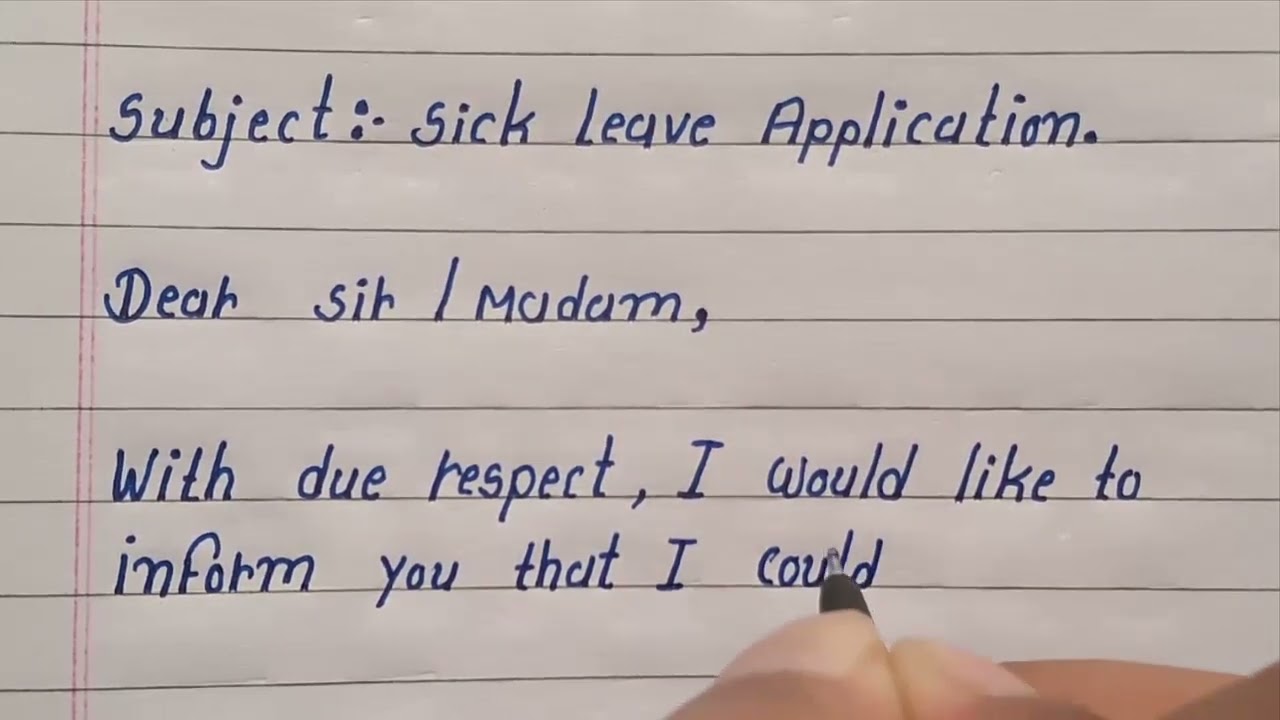 Subject:- Sick Leave Application.
Dear Sir / Madam,
With due respect, I would like to
inform you that I could